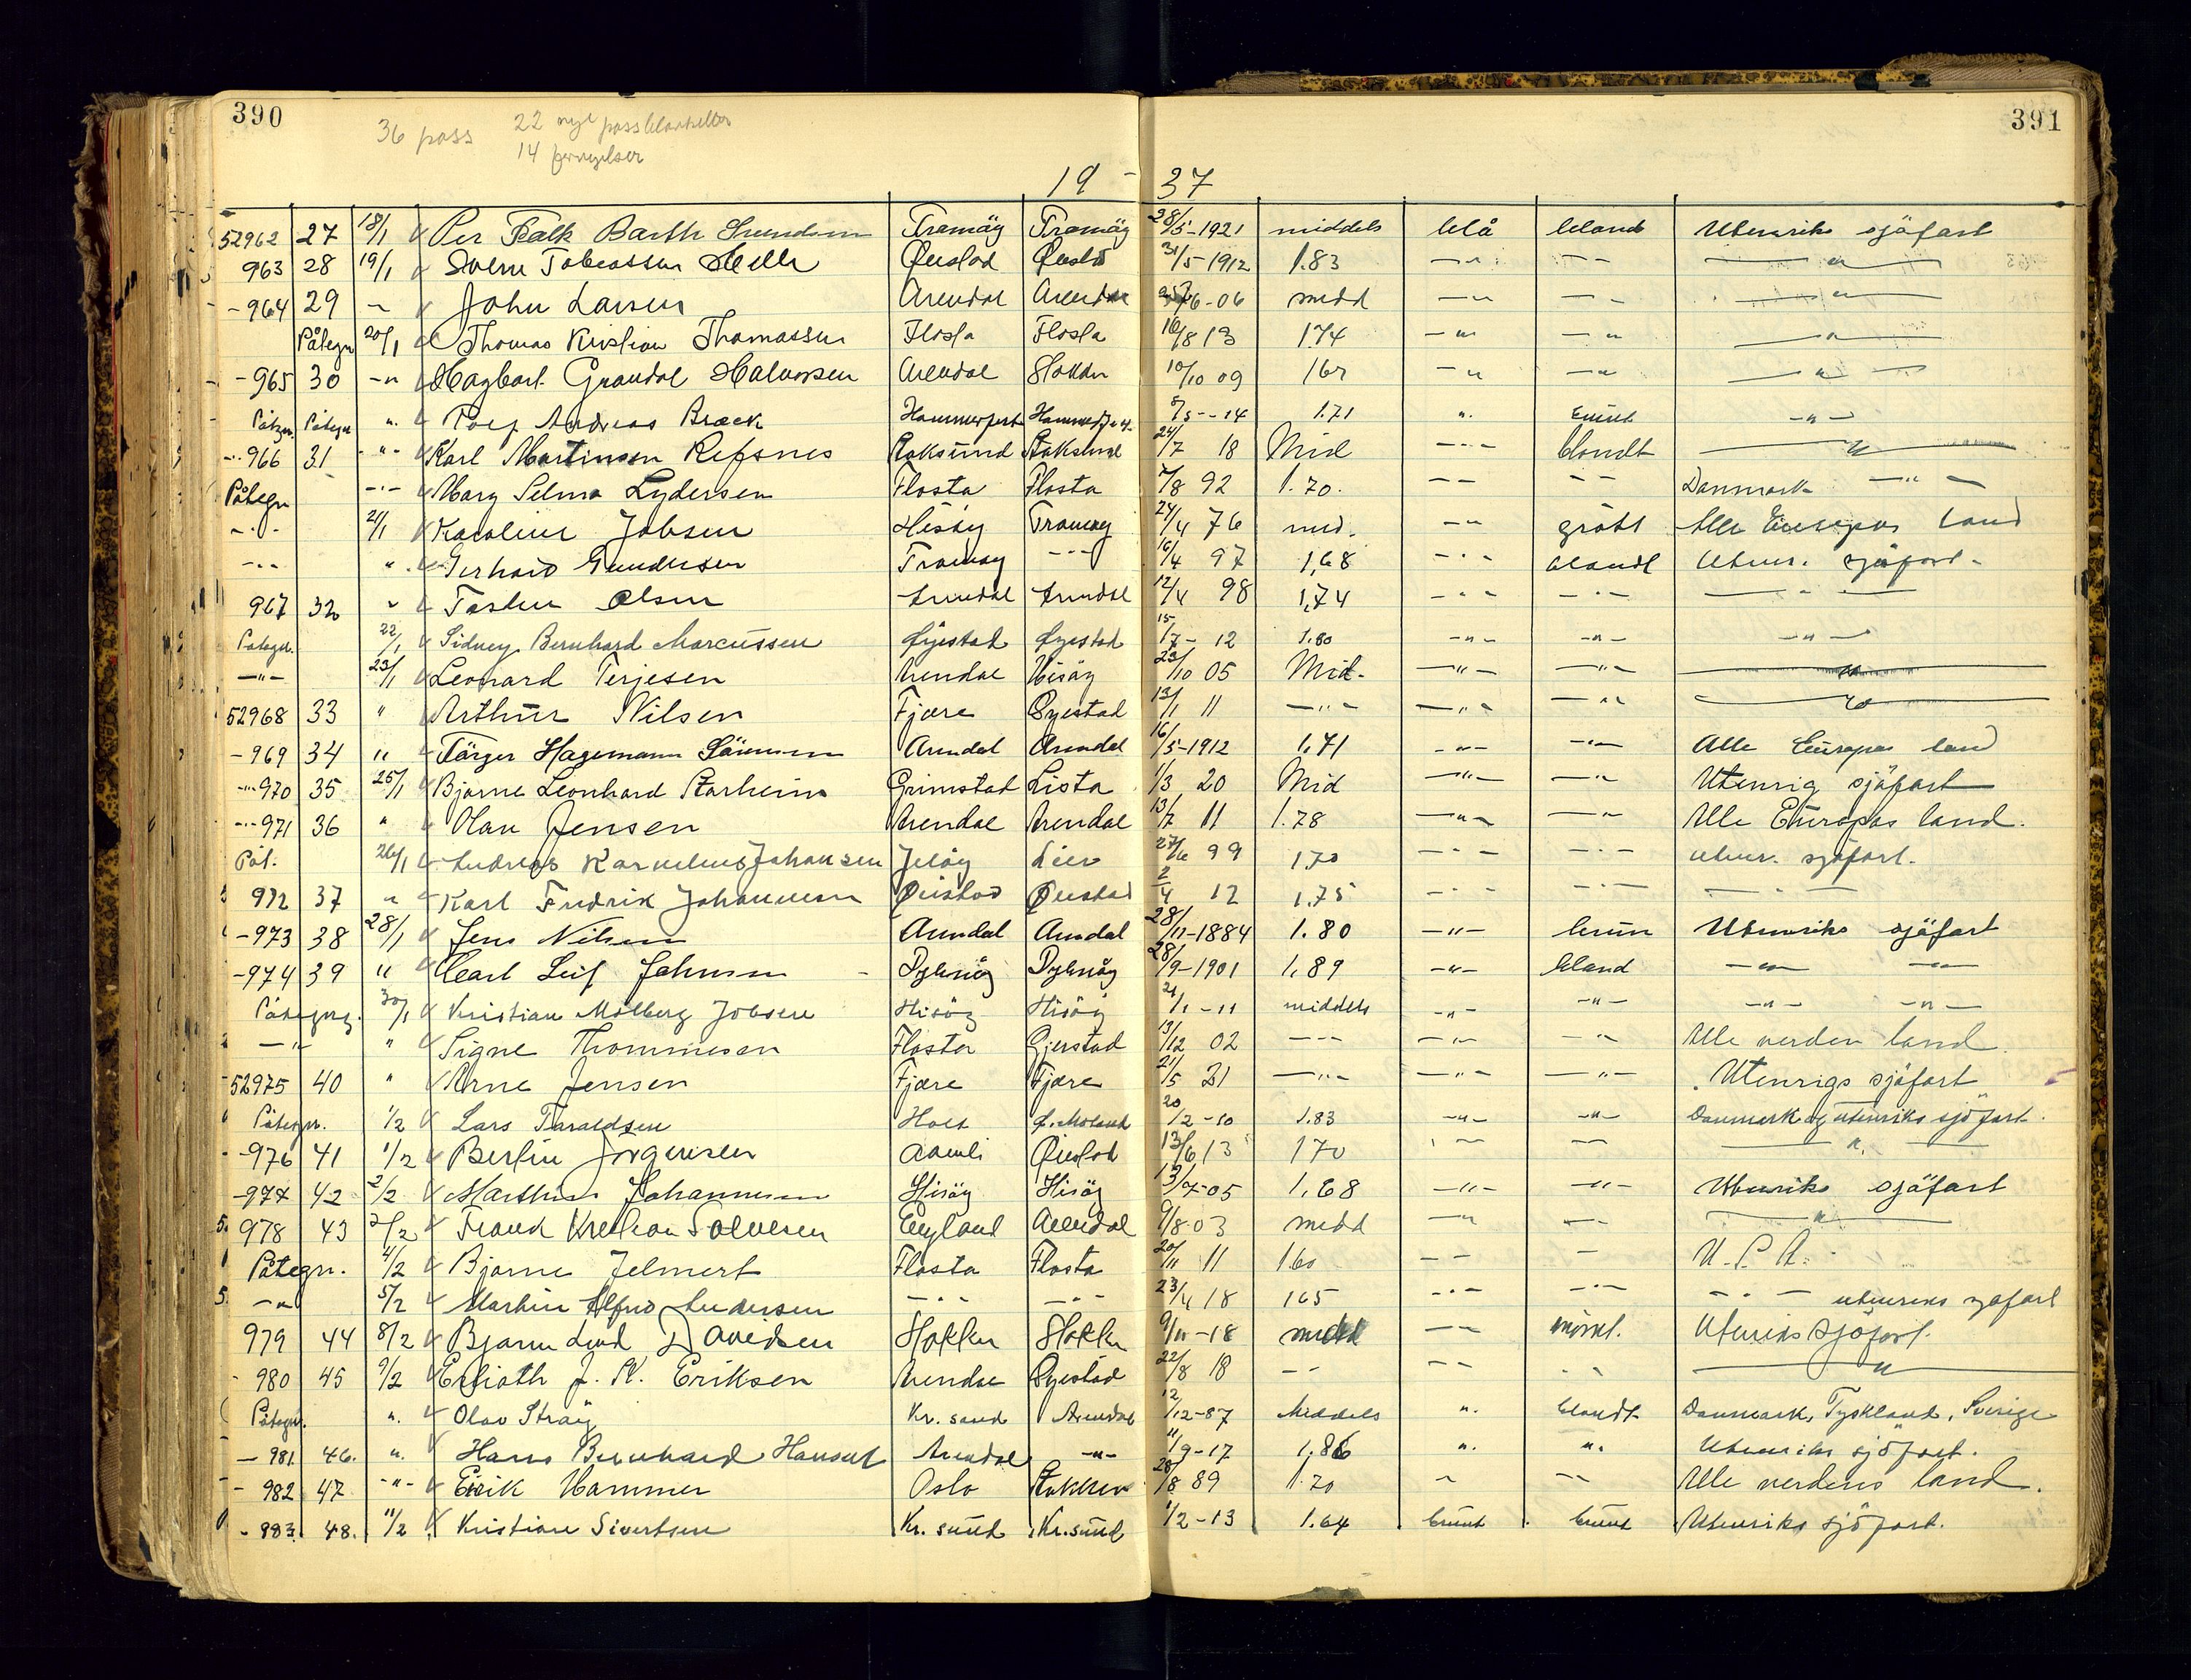 390
391
36 pass 22 nye passblanketter
14 fornyelser
19 - 37
52962 27 18/1 Per Falk Barth Tromöy Tromöy 28/5-1921 middels blå blond Utenriks sjöfart
963 28 19/1 Sverre Tobiassen Helle Öiestad Öiestad 31/5-1912 1.83 -"- -"- -"-
-964 29 - John Larsen Arendal Arendal 6-06 midd -"- -"- -"-
Påtegn 20/1 Thomas Kristian Thomassen Flosta Flosta 16/8 13 1.74 -"- -"- -"-
-965 30 -"- Hagbart Grøndal Halvorsen Arendal Stokken 10/10 09 167 -"- -"- -"-
Påtegn. Påtegn ". Andreas Bræck Hammerfest Hammerfest 5/5--14 1.71 ". brunt -"-
-"-966 31 -"- Karl Martinsen Refsnes Stoksund Stoksund 24/7 18 Mid -"- blondt -"-
Påtegn -"- Mary Selma Lydersen Flosta Flosta 7/8 92 1.70. -- -- Danmark -"-
-"- 21/1 Karoline Jobsen Hisöy Tromöy 24/4 76 mid. -"- grått Alle Europas land
-"- ". Gerhard Gundersen Tromöy -"- 16/4 97 1,68 -"- blondt Utenr. sjöfart.
967 32 " Torsten Olsen Arendal Arendal 12/4 98 1,74 -"- -"- -"-
Påtegn. 22/1 Sidney Bernhard Marcussen Öyestad Öyestad 15/7- 12 1.80 -"- -"- -"-
-"- 23/1 Leonard Terjesen Arendal Hisöy 23/10 05 Mid. -"- -"- -"-
52968 33 " Arthur Nilsen Fjære Öyestad 13/1 11 -"- -"- -"- -"-
-969 34 " Hagemann Arendal Arendal 16/5-1912 1,71 -"- -"- Alle Europas land
-"-970 35 25/1 Bjarne Leonhard Storheim Grimstad Lista 1/3 20 Mid -"- -"- Utenrig sjöfart
-"-971 36 " Olav Jensen Arendal Arendal 13/7 11 1.78 -"- -"- Alle Europas land.
Påt. 26/1 Andreas Kornelius Johansen Jelöy Lier 27/6 99 1,70 -"- -"- utenr. sjöfart.
972 37 " Karl Fredrik Johannesen Öiestad Öiestad 2/4 12 1.75 -"- -"- -"-
-973 38 28/1 Jens Nilsen Arendal Arendal 28/11-1884 1.80 -"- brun Utenriks sjöfart
-974 39 " Carl Leif Johnsen Dybvåg Dybvåg 28/9-1901 1,89 -"- blond -"- -"-
Påtegng. 30/1 Kristian Molberg Jobsen Hisöy Hisöy 21/1-11 middels -"- -"- -"- -"-
-"- " Signe Thommesen Flosta Gjerstad 13/12 02 -"- -"- -"- Alle verden land
52975 40 " Arne Jensen Fjære Fjære 21/5 21 -"- -"- -"- Utenrigs sjöfart
Påtegn. 1/2 Lars Taraldsen Holt Ø.Moland 20/2-10 1.83 -"- -"- Danmark og utenriks sjöfart.
-976 41 1/2 Berlin Jörgensen Aamli Öiestad 13/6 13 170 -"- -"- -"-
-977 42 2/2 Marthin Johannesen Hisöy Hisöy 13/7-05 1,68 -"- -"- Utenriks sjöfart
978 43 2/2 Frank Kristian Solvesen England Arendal 9/8 03 midd -"- -"- -"-
Påtegn. 4/2 Bjarne Jelmert Flosta Flosta 20/11 11 160 -- - U.S.A.
-"- 5/2 Martin Alfred Andersen -"- -"- 23/4 18 165 -"- -"- -"- utenriks sjöfart
979 44 8/2 Bjarne Lind Davidsen Stokken Stokken 9/11-18 midd -- mörkt. Utenriks sjöfart.
980 45 9/2 J. K. Eriksen Arendal Öyestad 22/8 18 -- -- -"- -"-
Påtegn. ". Olav Straÿ Kr.sand Arendal 12/12-87 Middels ". blondt Danmark, Tyskland, Sverige
-981 46. ". Hans Bernhard Hansen Arendal -"- 11/9-17 1,86 ". ". Utenriks sjöfart.
-982 47 -"- Eirik Hammer Oslo Stokken 28/8 89 1.70 " -"- Alle verdens land.
-983. 48. 11/2 Kristian Sivertsen Kr.sund Kr.sund 1/2-13 1.64 brunt brunt Utenriks sjöfart.